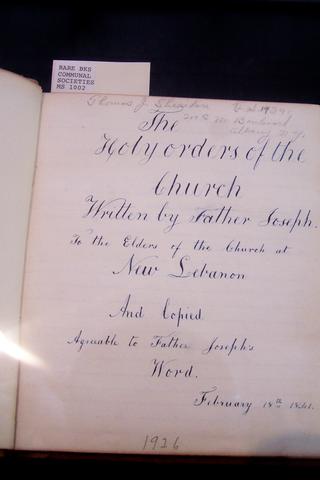 RARE BKS
COMMUNAL
SOCIETIES
MS 1002
Thomas J.
The
Holy orders of the
Church
Written by Father Joseph.
To the Elders of the Church at
New Lebanon
And Copied
Agreeable to Father Joseph's
Word.
February 18th 1841.
1936